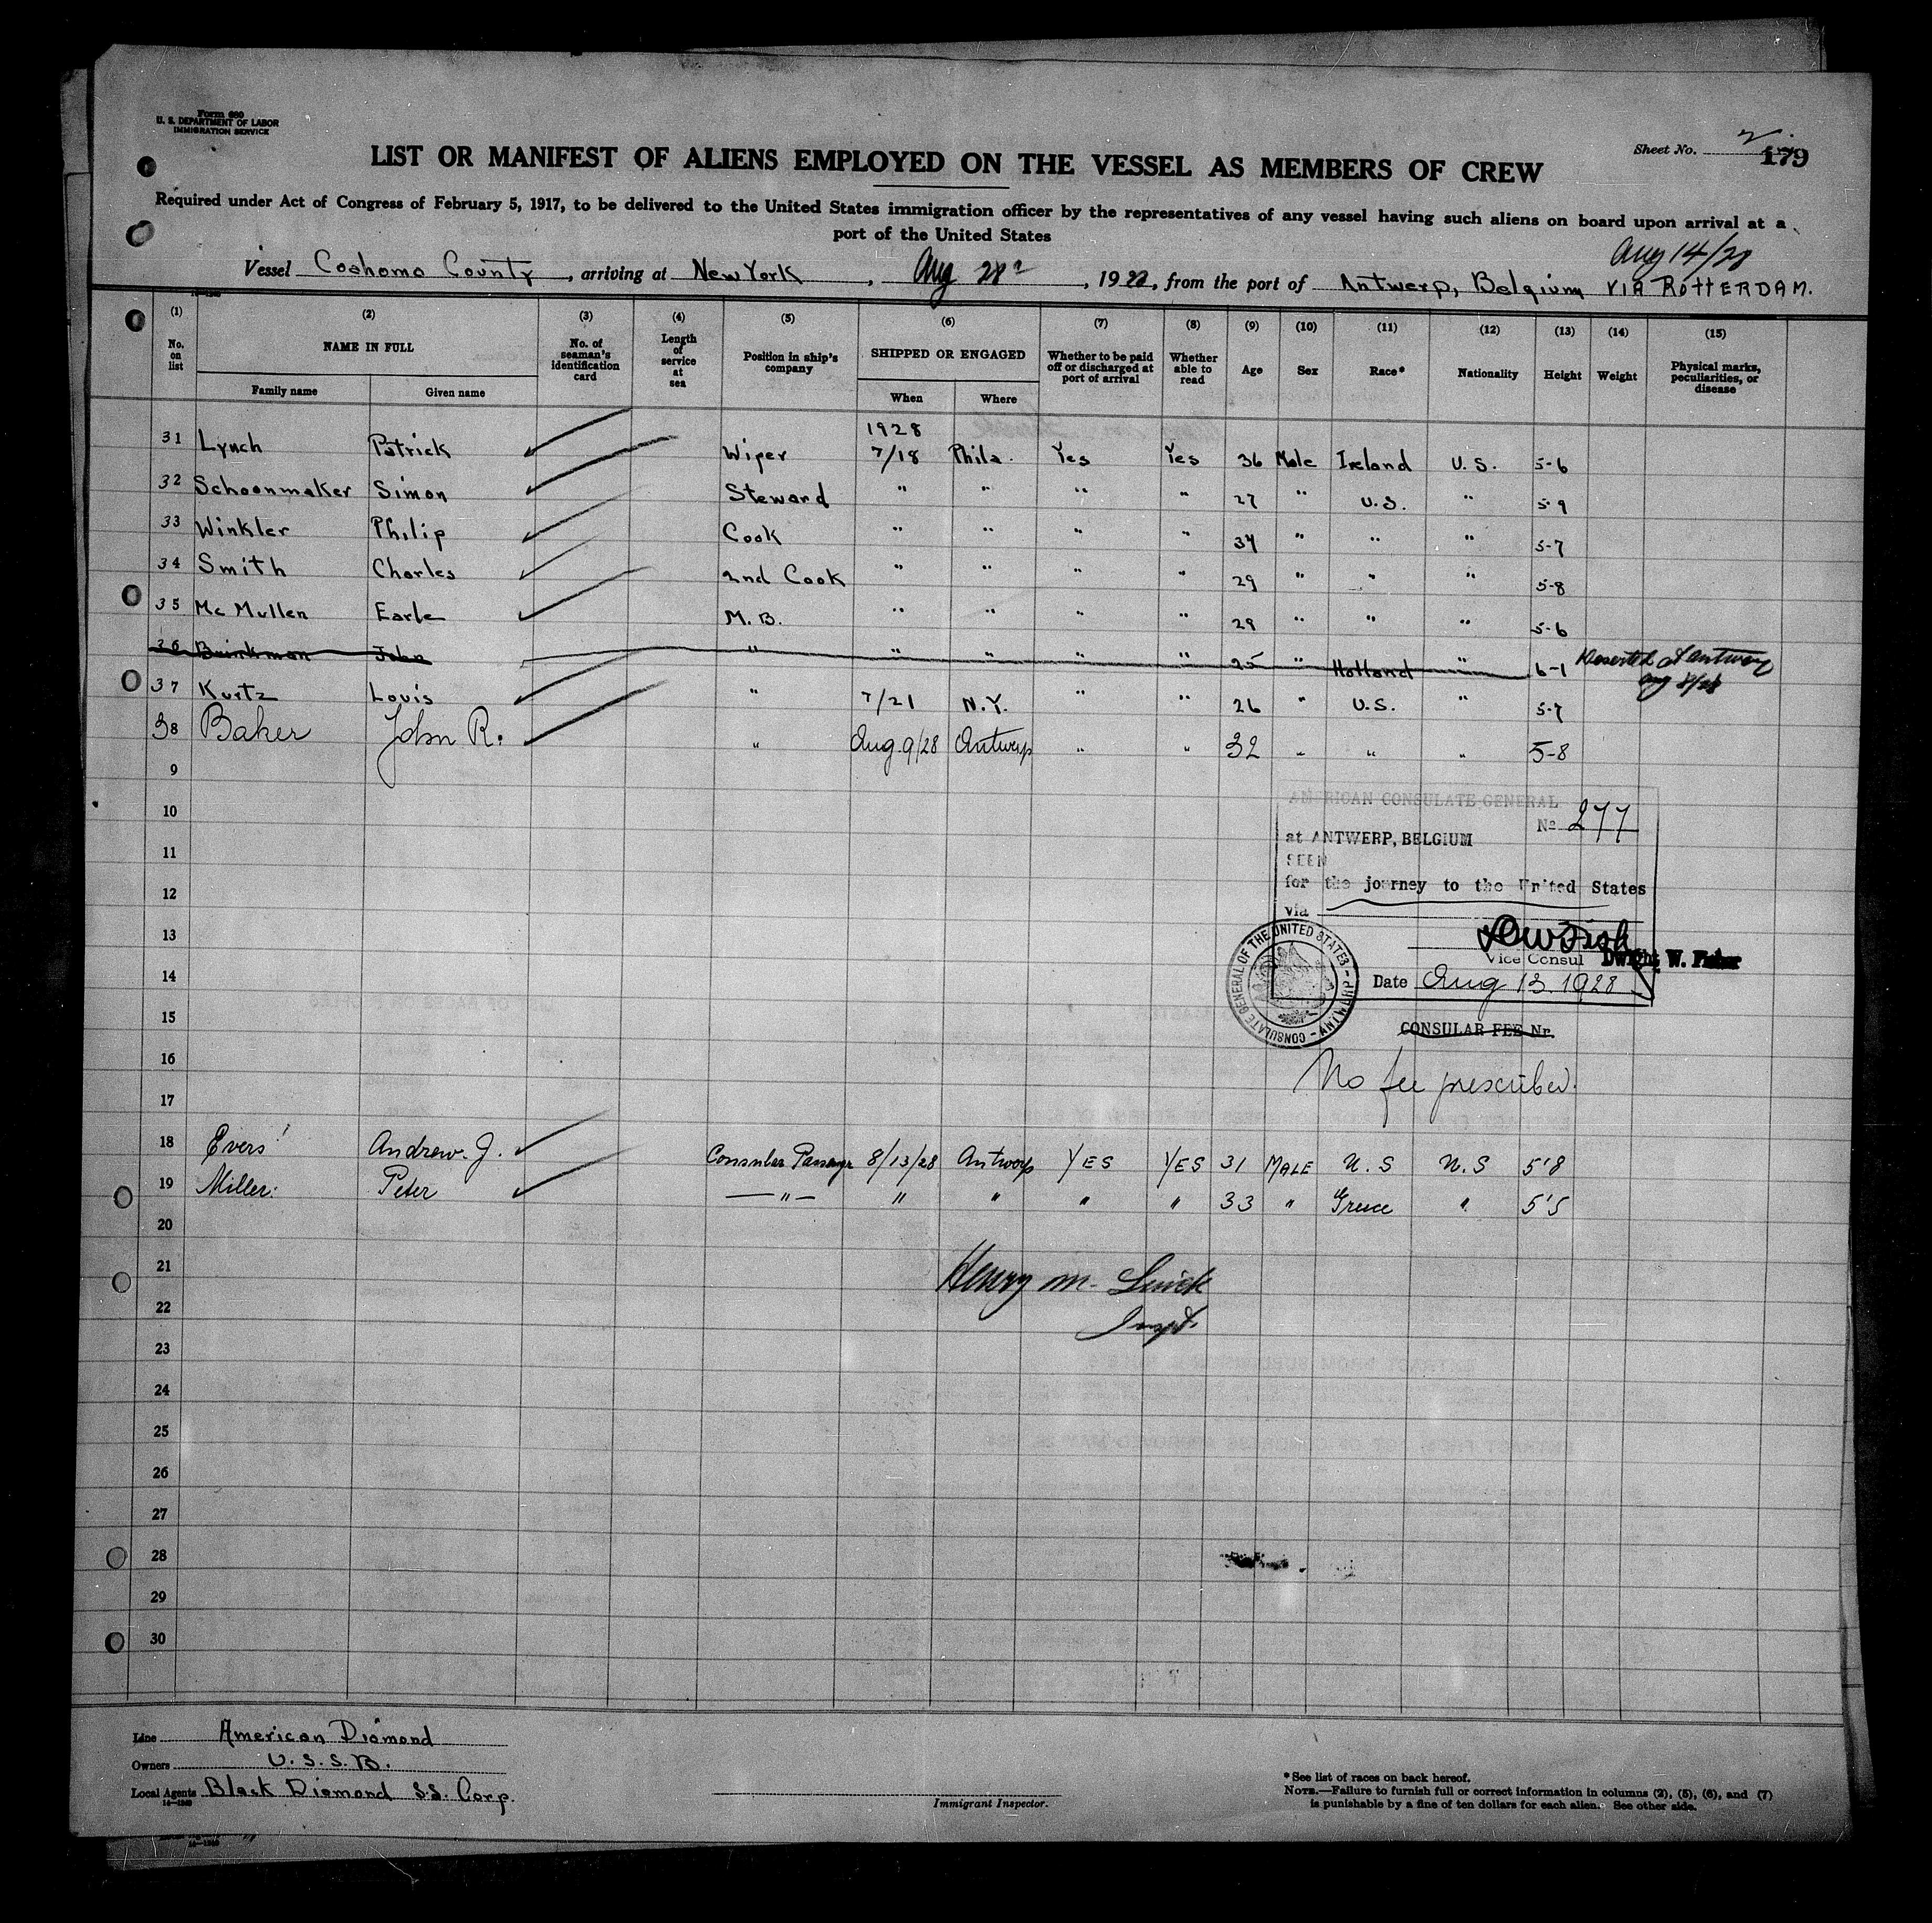 Form 680
U. S. DEPARTMENT OF LABOR
IMMIGRATION SERVICE
Sheet No. 2
179
LIST OR MANIFEST OF ALIENS EMPLOYED ON THE VESSEL AS MEMBERS OF CREW
Required under Act of Congress of February 5, 1917, to be delivered to the United States immigration officer by the representatives of any vessel having such aliens on board upon arrival at a
port of the United States
Aug 14/28
Vessel Coahoma County, arriving at New York, Aug 28, 1928, from the port of Antwerp, Belgium VIA ROTTERDAM.
(1) (2) (3) (4) (5) (6) (7) (8) (9) (10) (11) (12) (13) (14) (15)
No. on list NAME IN FULL No. of seaman's identification card Length of service at sea Position in ship's company SHIPPED OR ENGAGED Whether to be paid off or discharged at port of arrival Whether able to read Age Sex Race* Nationality Height Weight Physical marks, peculiarities, or disease
Family name Given name When Where
1928
31 Lynch Patrick Wiper 7/18 Phila. Yes Yes 36 Male Ireland U.S. 5-6
32 Schoonmaker Simon Steward " " " " 27 " U.S. " 5-9
33 Winkler Philip Cook " " " " 34 " " " 5-7
34 Smith Charles 2nd Cook " " " " 29 " " " 5-8
35 Mc Mullen Earle M.B. " " " " 29 " " " 5-6
36 Brinkman John " " " " " 25 " Holland " 6-1 Deserted at Antwerp
Aug 8/28
37 Kurtz Louis " 7/21 N.Y. " " 26 " U.S. " 5-7
38 Baker John R. " Aug. 9/28 Antwerp " " 32 " " " 5-8
9
AMERICAN CONSULATE GENERAL
10
No 277
at ANTWERP, BELGIUM
11
SEEN
for the journey to the United States
12
via
13
Vice Consul Dwight W. Fisher
14
Date Aug 13. 1928
CONSULATE GENERAL OF THE UNITED STATES - ANTWERP
15
CONSULAR FEE Nr.
16
No fee prescribed.
17
18 Evers Andrew. J. Consular Passenger 8/13/28 Antwerp YES YES 31 MALE U.S U.S 5'8
19 Miller. Peter — " — " " " " 33 " Greece " 5'5
20
21
Henry M.
22
Inspt.
23
24
25
26
27
28
29
30
Line American Diamond
Owners U.S.S.B.
Local Agents Black Diamond S.S. Corp.
Immigrant Inspector.
*See list of races on back hereof.
NOTE.—Failure to furnish full or correct information in columns (2), (5), (6), and (7)
is punishable by a fine of ten dollars for each alien. See other side.